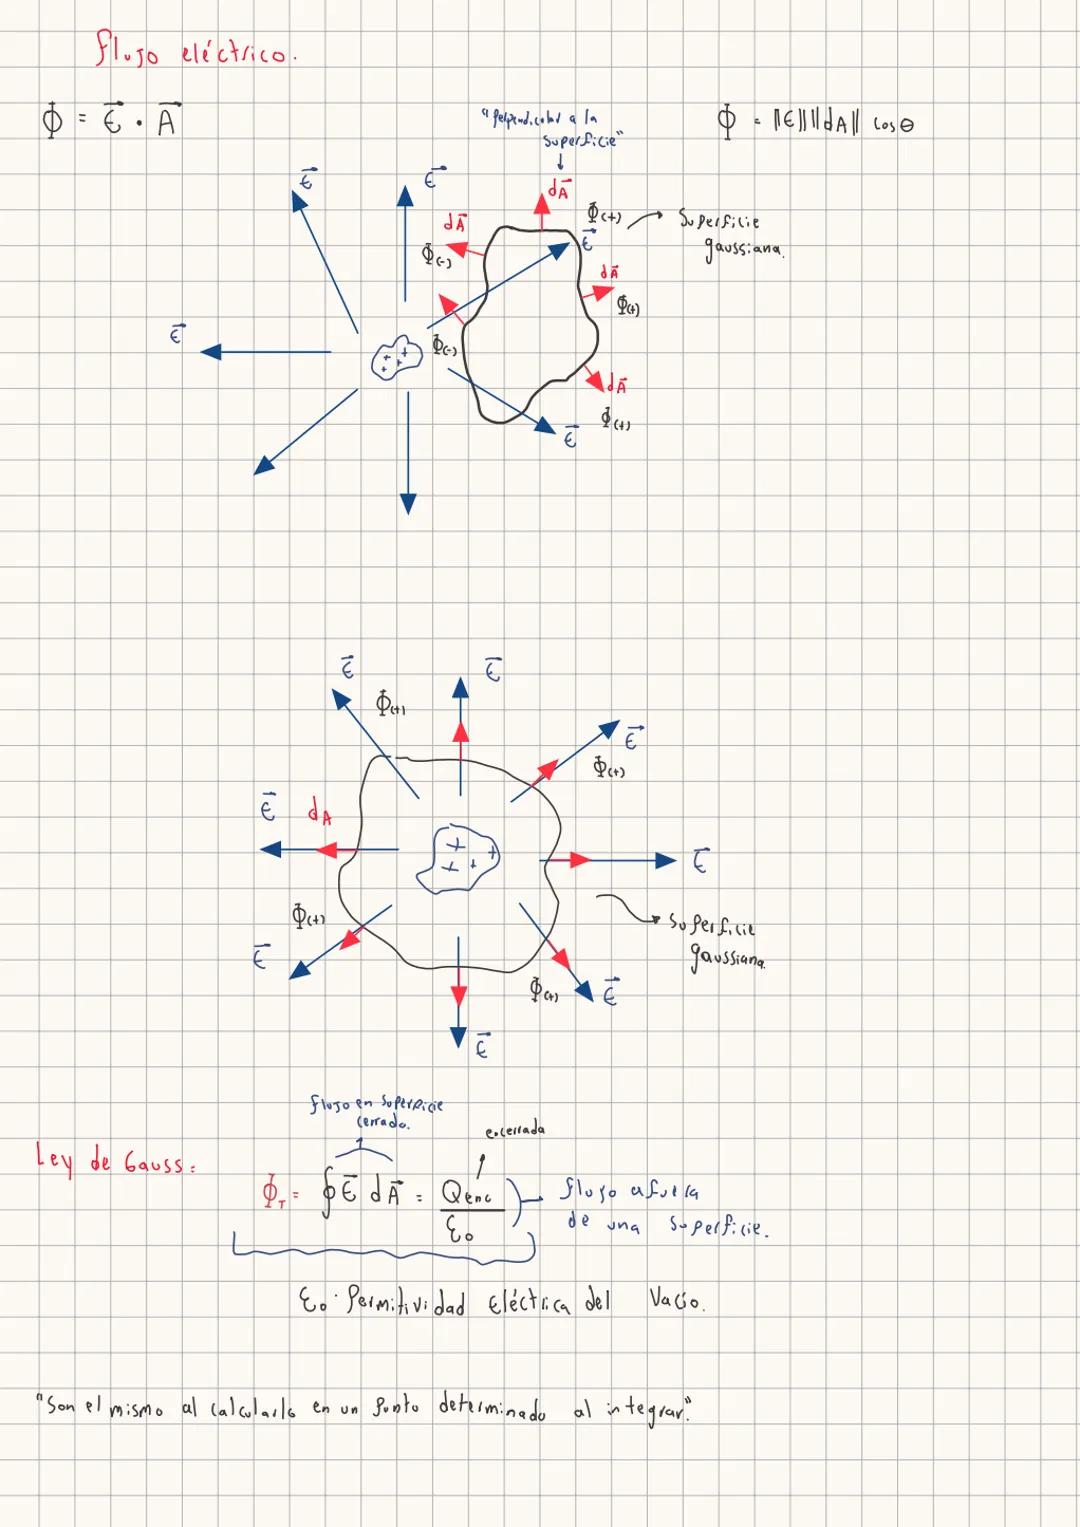 Flujo eléctrico.
Φ = E⃗ · A⃗
"Perpendicular a la
superficie"
Φ = ||E|| ||dA|| cos θ
E⃗
E⃗
dA⃗
dA⃗
Φ(+)
E⃗
Superficie
gaussiana.
Φ(-)
dA⃗
Φ(+)
E⃗
Φ(-)
dA⃗
Φ(+)
E⃗
+ + + +
E⃗
E⃗
Φ(+)
E⃗
Φ(+)
E⃗
dA
+ + + + +
E⃗
Φ(+)
Superficie
gaussiana.
E⃗
Φ(+)
E⃗
E⃗
flujo en superficie
cerrada.
encerrada
Ley de Gauss:
Φ_T = ∮ E⃗ dA⃗ = Qenc / ε₀
flujo afuera
de una superficie.
ε₀ · Permitividad Eléctrica del Vacío.
"Son el mismo al calcularlo en un punto determinado al integrar."